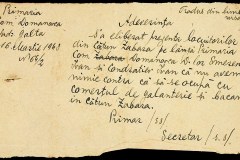 Primaria
Com Domanovca
Jud. Golta
15 Martie 1943
No 66/2
Tradus din limba
Adeverința
S'a eliberat prezenta locuitorilor
din Cătun Zabara pe lângă Primăria
Com. Domanovca D-lor
Ivan și Condratiev Ivan că nu avem
nimic contra că să se ocupe cu
comerțul de galanterie și băcănie
în cătun Zabara.
Primar /ss/
Secretar /s.s/